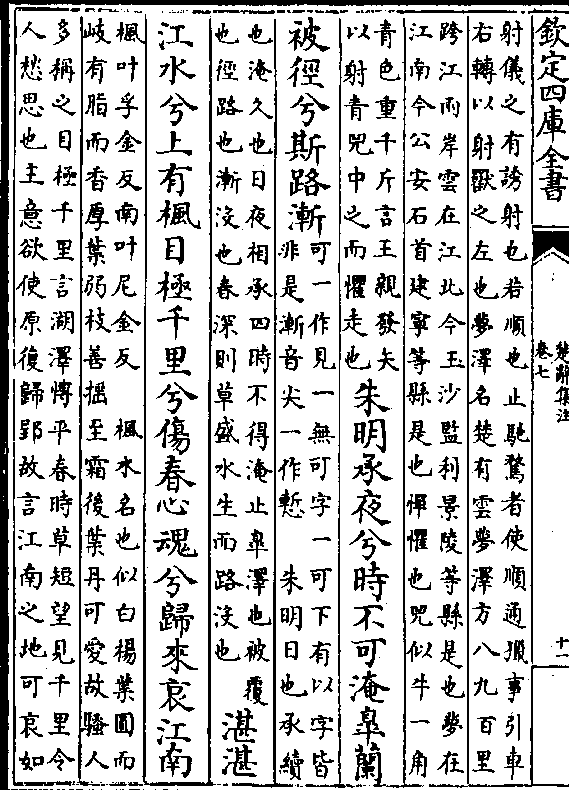 欽定四庫全書
楚辭集注
卷七
十一
射儀之有誘射也若順也止馳騖者使順通獵事引車
右轉以射獸之左也夢澤名楚有雲夢澤方八九百里
跨江兩岸雲在江北今玉沙監利景陵等縣是也夢在
江南今公安石首建寧等縣是也憚懼也兕似牛一角
青色重千斤言王親發矢
以射青兕中之而懼走也
朱明承夜兮時不可淹皋蘭
被徑兮斯路漸
可一作見一無可字一可下有以字皆
非是漸音尖一作慙　朱明日也承續
也淹久也日夜相承四時不得淹止皋澤也被覆
也徑路也漸沒也春深則草盛水生而路沒也
湛湛
江水兮上有楓目極千里兮傷春心魂兮歸來哀江南
楓叶孚金反南叶尼金反　楓木名也似白楊葉圓而
岐有脂而香厚葉弱枝善揺至霜後葉丹可愛故騷人
多稱之目極千里言湖澤博平春時草短望見千里令
人愁思也主意欲使原復歸郢故言江南之地可哀如